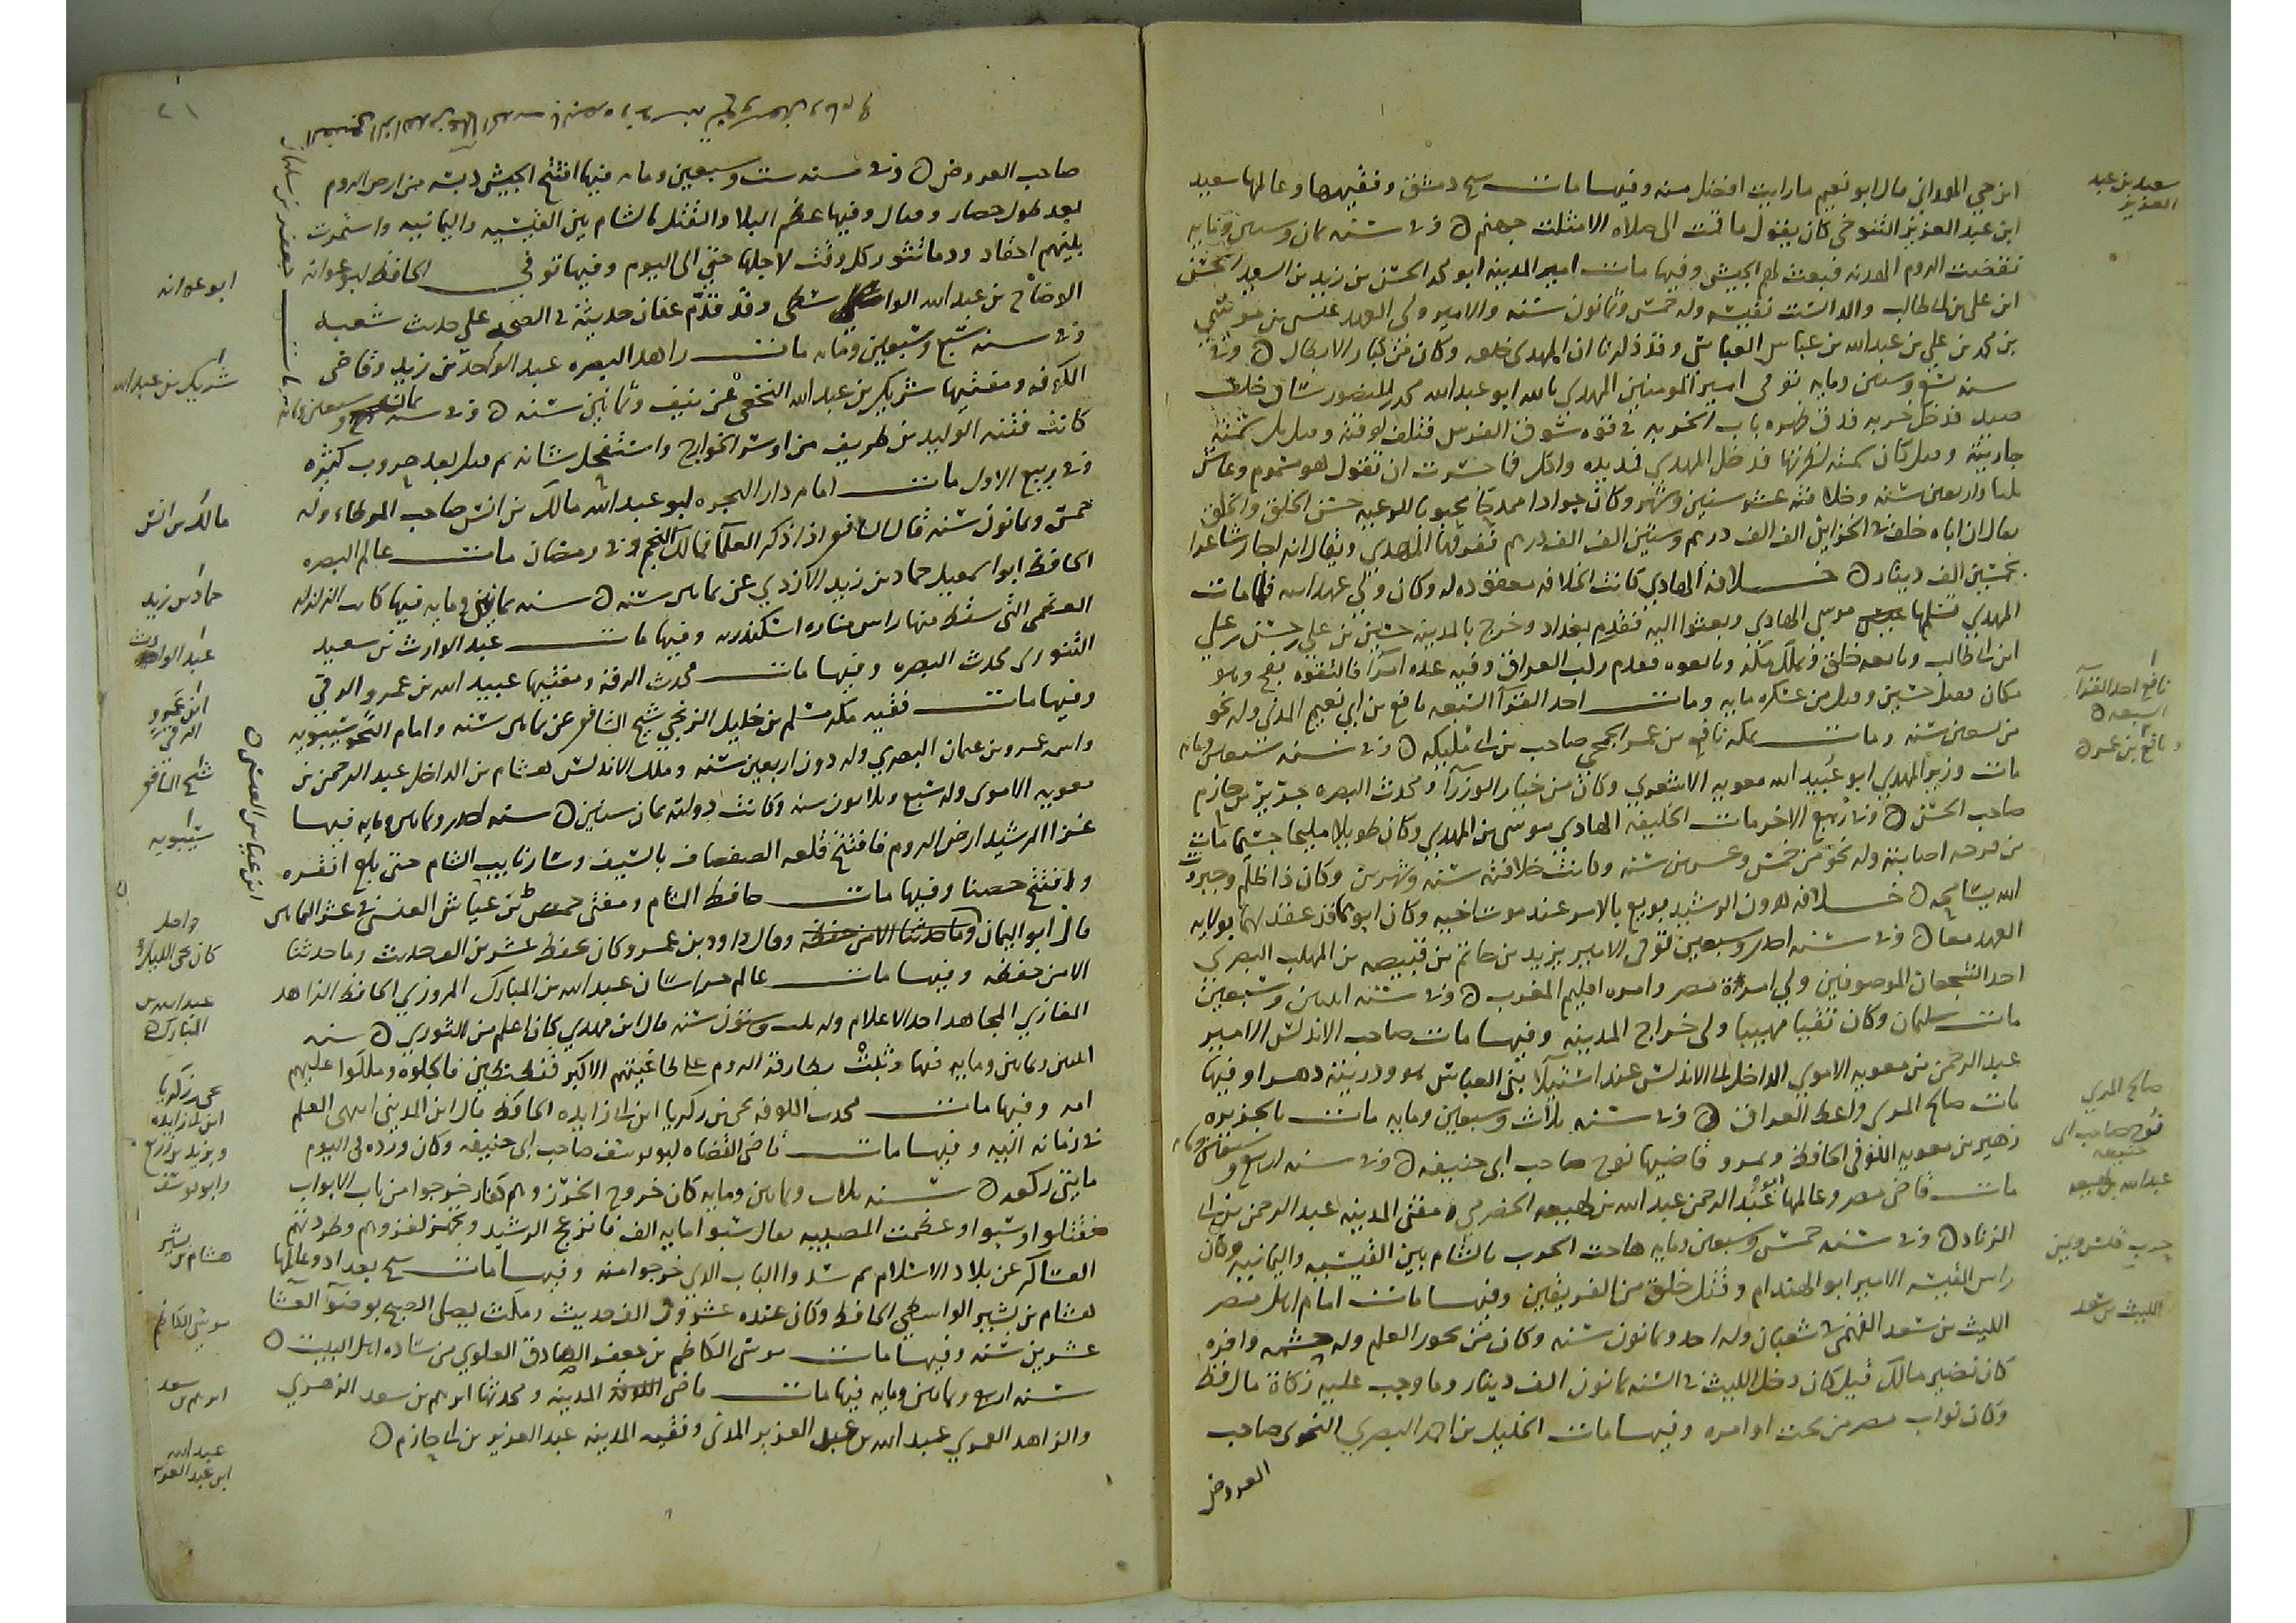 سعيد بن عبد
العزيز
ابن حي الهمداني قال ابو نعيم ما رايت افضل منه وفيها مات شيخ دمشق وفقيهها وعالمها سعيد
ابن عبد العزيز التنوخي كان يقول ما قمت الى صلاة الا مثلت جهنم ه وفي سنة ثمان وستين ومايه
نقضت الروم الهدنه فبعث لهم الجيش وفيها مات امير المدينه ابو محمد الحسن بن زيد بن السيد الحسن
ابن علي بن ابي طالب والد الست نفيسه وله خمس وثمانون سنه والامير ولي العهد عيسى بن موسى
بن محمد بن علي بن عبد الله بن عباس العباسي وقد ذكرنا ان المهدي خلعه وكان من كبار الابطال ه وفي
سنه تسع وستين ومايه توفي امير المومنين المهدي بالله ابو عبد الله محمد بن المنصور ساق خلف
صيد فدخل خربه فدق ظهره باب الخربه في قوه سوق الفرس فتلف لوقته وقيل بل سمته
جاريته وقيل كان سمته لضرتها فدخل المهدي فمد يده واكل فما جسرت ان تقول هو مسموم وعاش
ثلثا واربعين سنه وخلافته عشر سنين وشهر وكان جوادا ممدحا محببا للرعيه حسن الخلق والخلق
يقال ان اباه خلف في الخزاين الف الف درهم وستين الف الف درهم ففرقها المهدي ويقال انه اجاز شاعرا
بخمسين الف دينار ه خلافة الهادي كانت الخلافه معقوده له وكان ولي عهد ابيه فلما مات
المهدي تسلمها موسى الهادي وبعثوا اليه فقدم بغداد وخرج بالمدينه حسين بن علي بن حسن بن علي
ابن ابي طالب وبايعه خلق وتملك مكه وبايعوه فقدم ركب العراق وفيه عده امرآ فالتقوه بفخ وهو
مكان فقتل حسين وقتل من عسكره مايه ومات احد القرآ السبعه نافع بن ابي نعيم المدني وله نحو
نافع احد القرآ
السبعه ه
ونافع بن عمر ه
من تسعين سنه ومات بمكه نافع بن عمر الجمحي صاحب بن ابي مليكه ه وفي سنه سبعين ومايه
مات وزير المهدي ابو عبيد الله معويه الاشعري وكان من خيار الوزرآ ومحدث البصره جرير بن حازم
صاحب الحسن ه وفي ربيع الاخر مات الخليفه الهادي موسى بن المهدي وكان طويلا مليحا جسيما مات
من قرحه اصابته وله نحو من خمس وعشرين سنه وكانت خلافته سنه وشهرين وكان ذا ظلم وجبروت
الله يسامحه ه خلافه هرون الرشيد بويع بالامر عند موت اخيه وكان ابوهما قد عقد لهما بولايه
العهد معا ه وفي سنه احدى وسبعين توفي الامير يزيد بن حاتم بن قبيصه بن المهلب البصري
احد الشجعان الموصوفين ولي امرة مصر وامره اقليم المغرب ه وفي سنه اثنين وسبعين
مات سليمان وكان ثقيبا مهيبا ولي خراج المدينه وفيها مات صاحب الاندلس الامير
عبد الرحمن بن معويه الاموي الداخل الى الاندلس عند استيلآ بني العباس هو وذريته دهرا وفيها
صالح المري
مات صالح المري واعظ العراق ه وفي سنه ثلاث وسبعين ومايه مات بالجزيره
نوح صاحب ابي
حنيفه
زهير بن معويه الكوفي الحافظ وبمرو قاضيها نوح صاحب ابي حنيفه ه وفي سنه اربع وسبعين ومايه
عبد الله بن لهيعه
مات قاضي مصر وعالمها ابو عبد الرحمن عبد الله بن لهيعه الحضرمي ومفتي المدينه عبد الرحمن بن ابي
الزناد ه وفي سنه خمس وسبعين ومايه هاجت الحرب بالشام بين القيسيه واليمانيه وكان
حرب قيس ويمن
راس القيسيه الامير ابو الهندام وقتل خلق من الفريقين وفيها مات امام اهل مصر
الليث بن سعد
الليث بن سعد الفهمي في شعبان وله احد وثمانون سنه وكان من بحور العلم وله حشمه وافره
كان نظير مالك قيل كان دخل الليث في السنه ثمانون الف دينار وما وجب عليه زكاة مال قط
وكان نواب مصر من تحت اوامره وفيها مات الخليل بن احمد البصري النحوي صاحب
العروض
٢١
صاحب العروض ه وفي سنه ست وسبعين ومايه فيها افتتح الجيش دبسه من ارض الروم
بعد طول حصار وقتال وفيها عظم البلا والقتل بالشام بين القيسيه واليمانيه واستمرت
بينهم احقاد ودما تثور كل وقت لاجلها حتى الى اليوم وفيها توفي الحافظ ابو عوانه
ابو عوانه
الوضاح بن عبد الله الواسطي وقد قدم عفان حديثه في الصحه على حديث شعبه
وفي سنه سبع وسبعين ومايه مات زاهد البصره عبد الواحد بن زيد وقاضي
شريك بن عبد الله
الكوفه ومفتيها شريك بن عبد الله النخعي عن نيف وثمانين سنه ه وفي سنه ثمان وسبعين ومايه
كانت فتنه الوليد بن طريف من رؤس الخوارج واستفحل شانه ثم قتل بعد حروب كثيره
وفي ربيع الاول مات امام دار الهجره ابو عبد الله مالك بن انس صاحب الموطاء وله
مالك بن انس
خمس وثمانون سنه قال الشافعي اذا ذكر العلمآ فمالك النجم وفي رمضان مات عالم البصره
حماد بن زيد
الحافظ ابو اسمعيل حماد بن زيد الازدي عن ثمانين سنه ه سنه ثمانين ومايه فيها كانت الزلزله
العظمى التي سقط منها راس مناره اسكندريه وفيها مات عبد الوارث بن سعيد
عبد الوارث
التنوري محدث البصره وفيها مات محدث الرقه ومفتيها عبيد الله بن عمرو الرقي
ابن عمرو
الرقي
وفيها مات فقيه مكه مسلم بن خليل الزنجي شيخ الشافعي عن ثمانين سنه وامام النحو سيبويه
شيخ الشافعي
واسمه عمرو بن عثمان البصري وله دون اربعين سنه وملك الاندلس هشام بن الداخل عبد الرحمن بن
سيبويه
معويه الاموي وله سبع وثلاثون سنه وكانت دولته ثمان سنين ه سنه احدى وثمانين ومايه فيها
غزا الرشيد ارض الروم فافتتح قلعه الصفصاف بالسيف وسار نايب الشام حتى بلغ انقره
ابن عياش العنسي ه
وافتتح حصنا وفيها مات حافظ الشام ومفتي حمص بن عياش العنسي في عشر الثمانين
قال ابو اليمان وما حدثنا الا من حفظه وقال داود بن عمرو كان يحفظ عشرين الف حديث وما حدثنا
الا من حفظه وفيها مات عالم خراسان عبد الله بن المبارك المروزي الحافظ الزاهد
عبد الله بن
المبارك ه
الغازي المجاهد احد الاعلام وله ثلث وستون سنه قال ابن مهدي كان اعلم من الثوري ه سنه
اثنين وثمانين ومايه فيها وثبت بطارقة الروم على طاغيتهم الاكبر قسطنطين فاكحلوه وملكوا عليهم
يحيى بن زكريا
ابن ابي زايده
امه وفيها مات محدث الكوفه يحيى بن زكريا ابن ابي زايده الحافظ قال ابن المديني انتهى العلم
ويزيد بن زريع
وابو يوسف
في زمانه اليه وفيها مات قاضي القضاه ابو يوسف صاحب ابي حنيفه وكان ورده في اليوم
مايتي ركعه ه سنه ثلاث وثمانين ومايه كان خروج الخزر وهم كفار خرجوا من باب الابواب
فقتلوا وسبوا وعظمت المصيبه يقال سبوا مايه الف فانزعج الرشيد وتجهز لغزوهم وطردتهم
هشام بن بشير
العساكر عن بلاد الاسلام ثم سدوا الباب الذي خرجوا منه وفيها مات شيخ بغداد وعالمها
هشام بن بشير الواسطي الحافظ وكان عنده عشرون الف حديث ومكث يصلي الصبح بوضوآ العشا
موسى الكاظم
عشرين سنه وفيها مات موسى الكاظم بن جعفر الصادق العلوي من ساده اهل البيت ه
ابرهيم بن سعد
سنه اربع وثمانين ومايه فيها مات قاضي المدينه ومحدثها ابرهيم بن سعد الزهري
عبد الله
ابن عبد العزيز
والزاهد العمري عبد الله بن عبد العزيز المدني وفقيه المدينه عبد العزيز بن ابي حازم ه